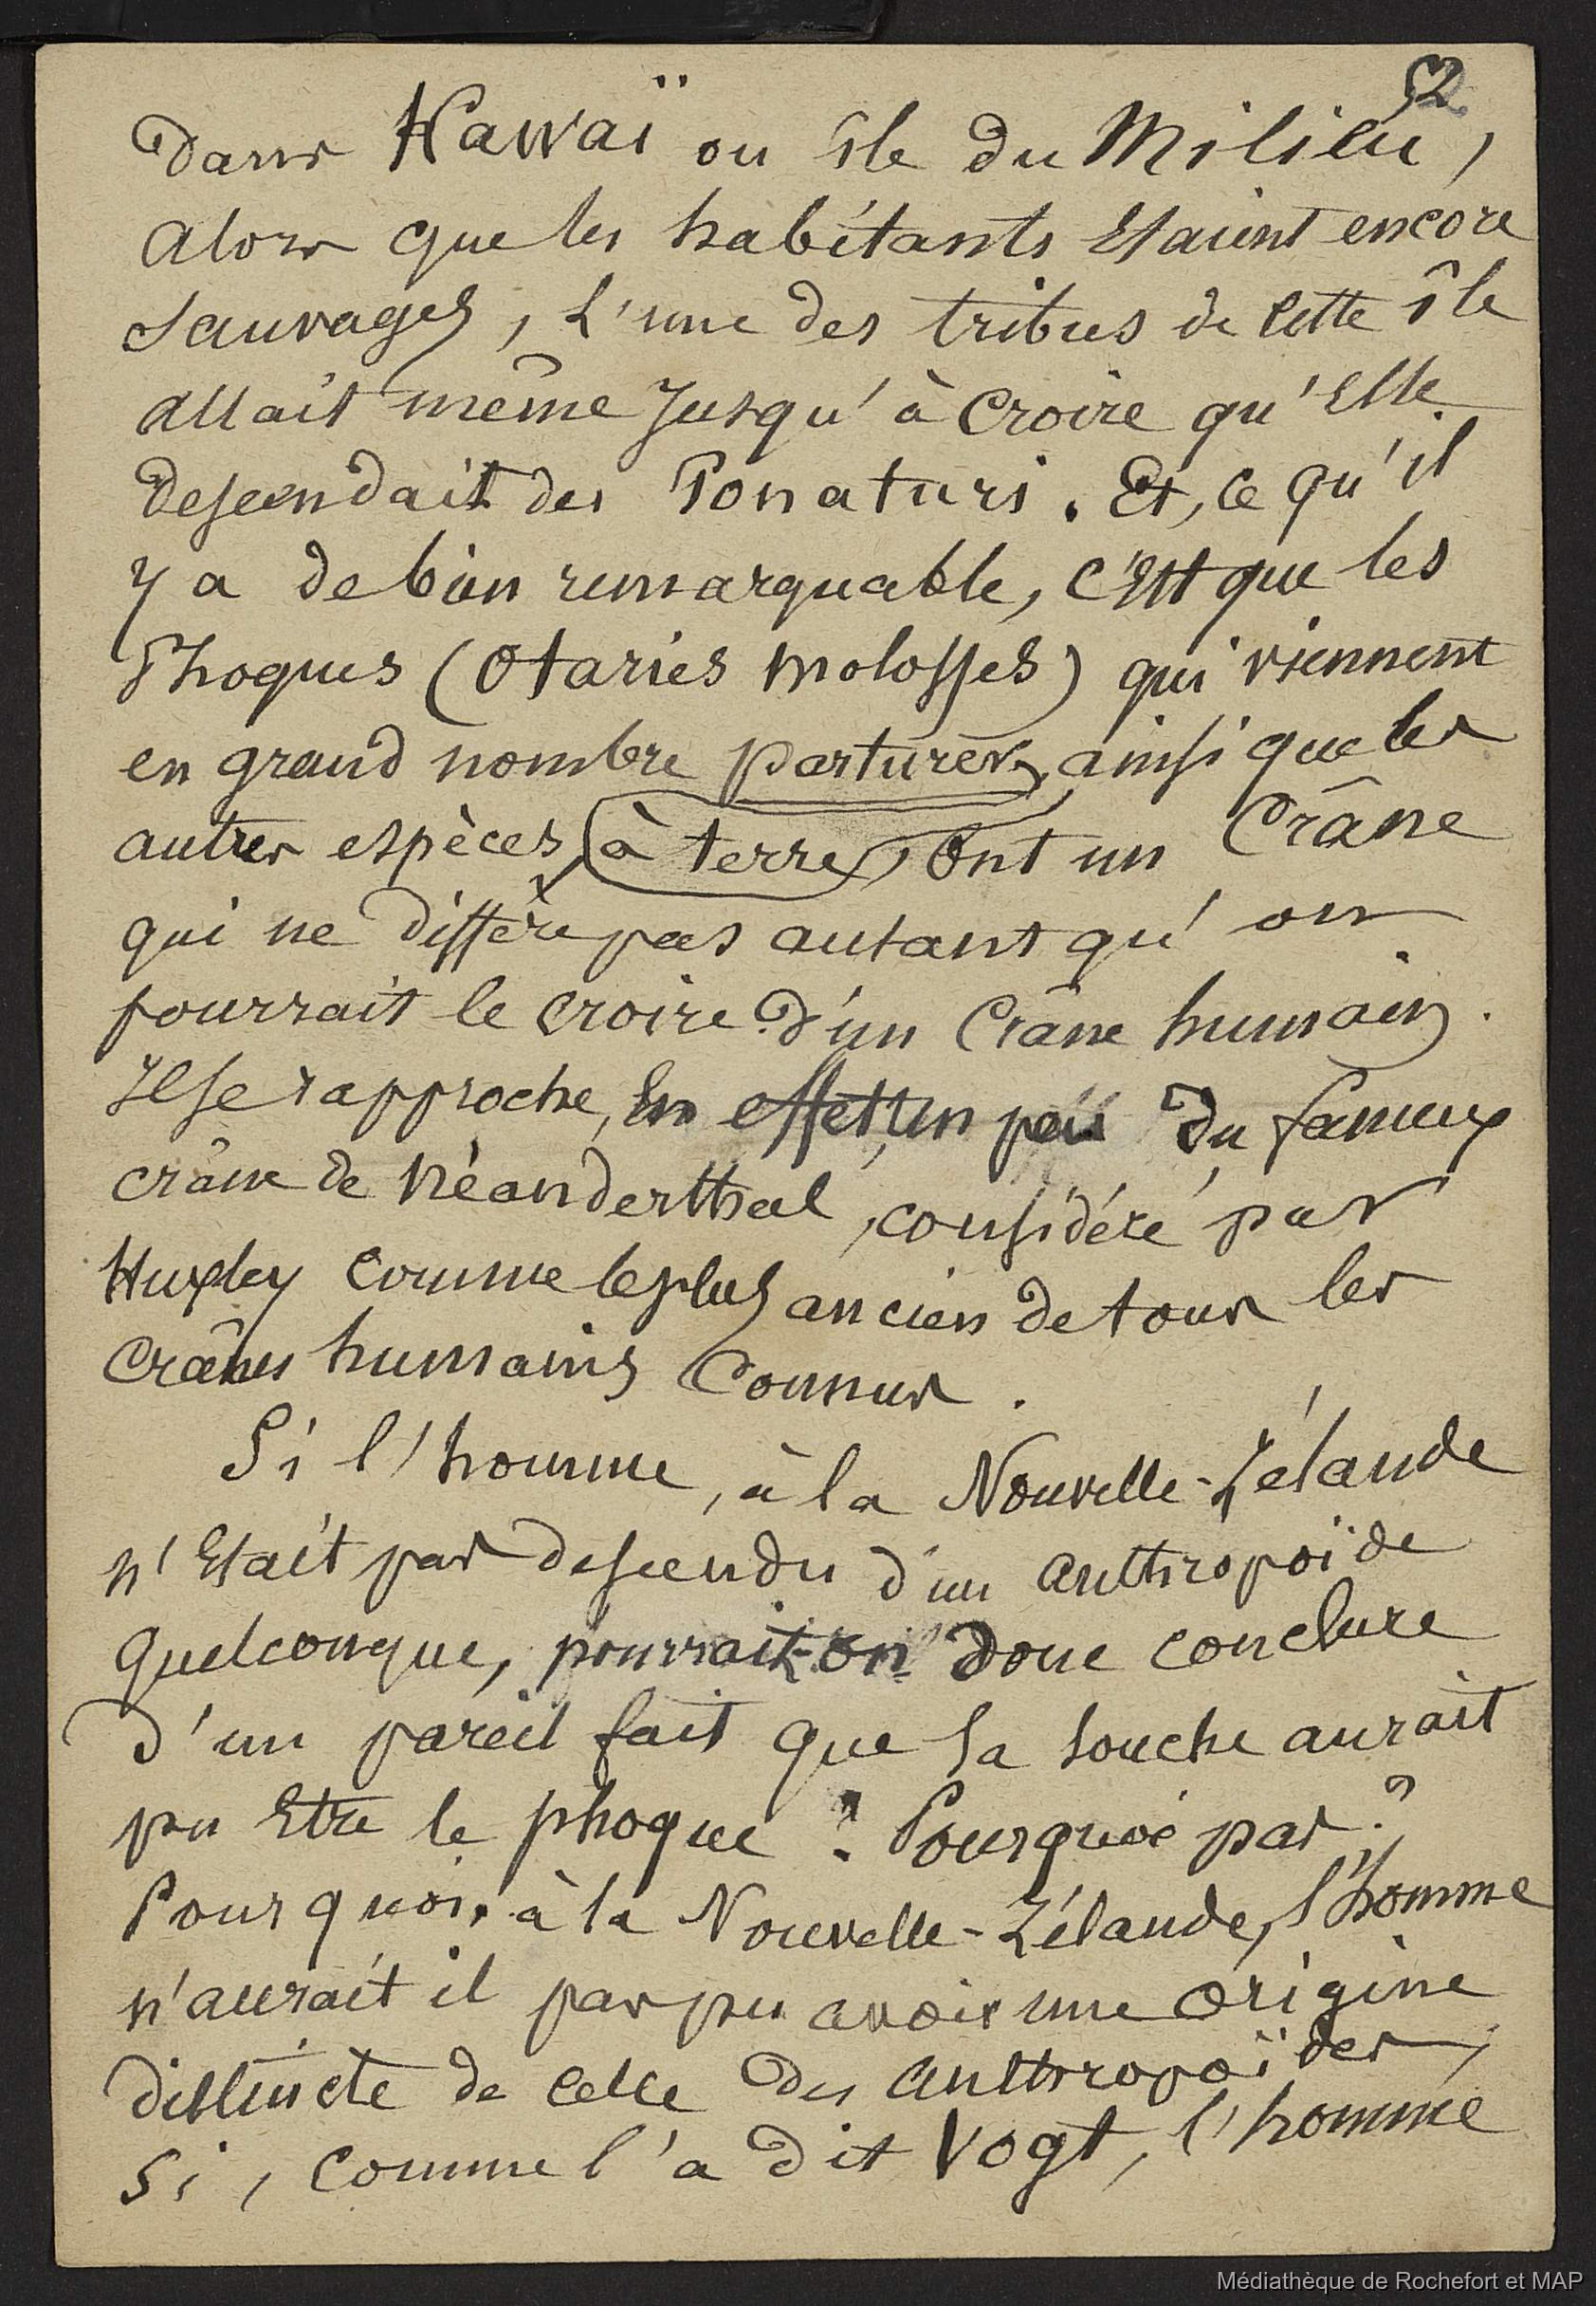 52
Dans Kawaï ou île du Milieu,
Alors que les habitants étaient encore
Sauvages, l'une des tribus de cette île
allait même jusqu'à croire qu'elle
descendait des Ponaturi. Et, ce qu'il
y a de bien remarquable, c'est que les
Phoques (Otaries molosses) qui viennent
en grand nombre parturer, ainsi que les
autres espèces, à terre, ont un Crâne
qui ne diffère pas autant qu'on
pourrait le croire d'un Crâne humain.
Il se rapproche, en effet, un peu du fameux
crâne de Néanderthal, considéré par
Huxley comme le plus ancien de tous les
crânes humains Connus.
Si l'homme, à la Nouvelle-Zélande
n'était pas descendu d'un anthropoïde
quelconque, pourrait-on donc conclure
d'un pareil fait que sa souche aurait
pu être le phoque ? Pourquoi pas ?
Pourquoi, à la Nouvelle-Zélande, l'homme
n'aurait il pas pu avoir une origine
distincte de celle des anthropoïdes,
Si, comme l'a dit Vogt, l'homme
Médiathèque de Rochefort et MAP